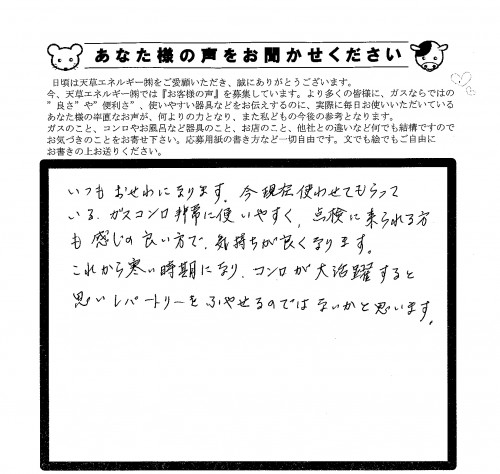 あなた様の声をお聞かせください
日頃は天草エネルギー㈱をご愛顧いただき、誠にありがとうございます。
今、天草エネルギー㈱では『お客様の声』を募集しています。より多くの皆様に、ガスならではの
”良さ”や”便利さ”、使いやすい器具などをお伝えするのに、実際に毎日お使いいただいている
あなた様の率直なお声が、何よりの力となり、また私どもの今後の参考となります。
ガスのこと、コンロやお風呂など器具のこと、お店のこと、他社との違いなど何でも結構ですので
お気づきのことをお寄せ下さい。応募用紙の書き方など一切自由です。文でも絵でもご自由に
お書きの上お送りください。
いつもおせわになります。今現在使わせてもらって
いる、ガスコンロ非常に使いやすく、点検に来られる方
も感じの良い方で、気持ちが良くなります。
これから寒い時期になり、コンロが大活躍すると
思いレパートリーをふやせるのではないかと思います。